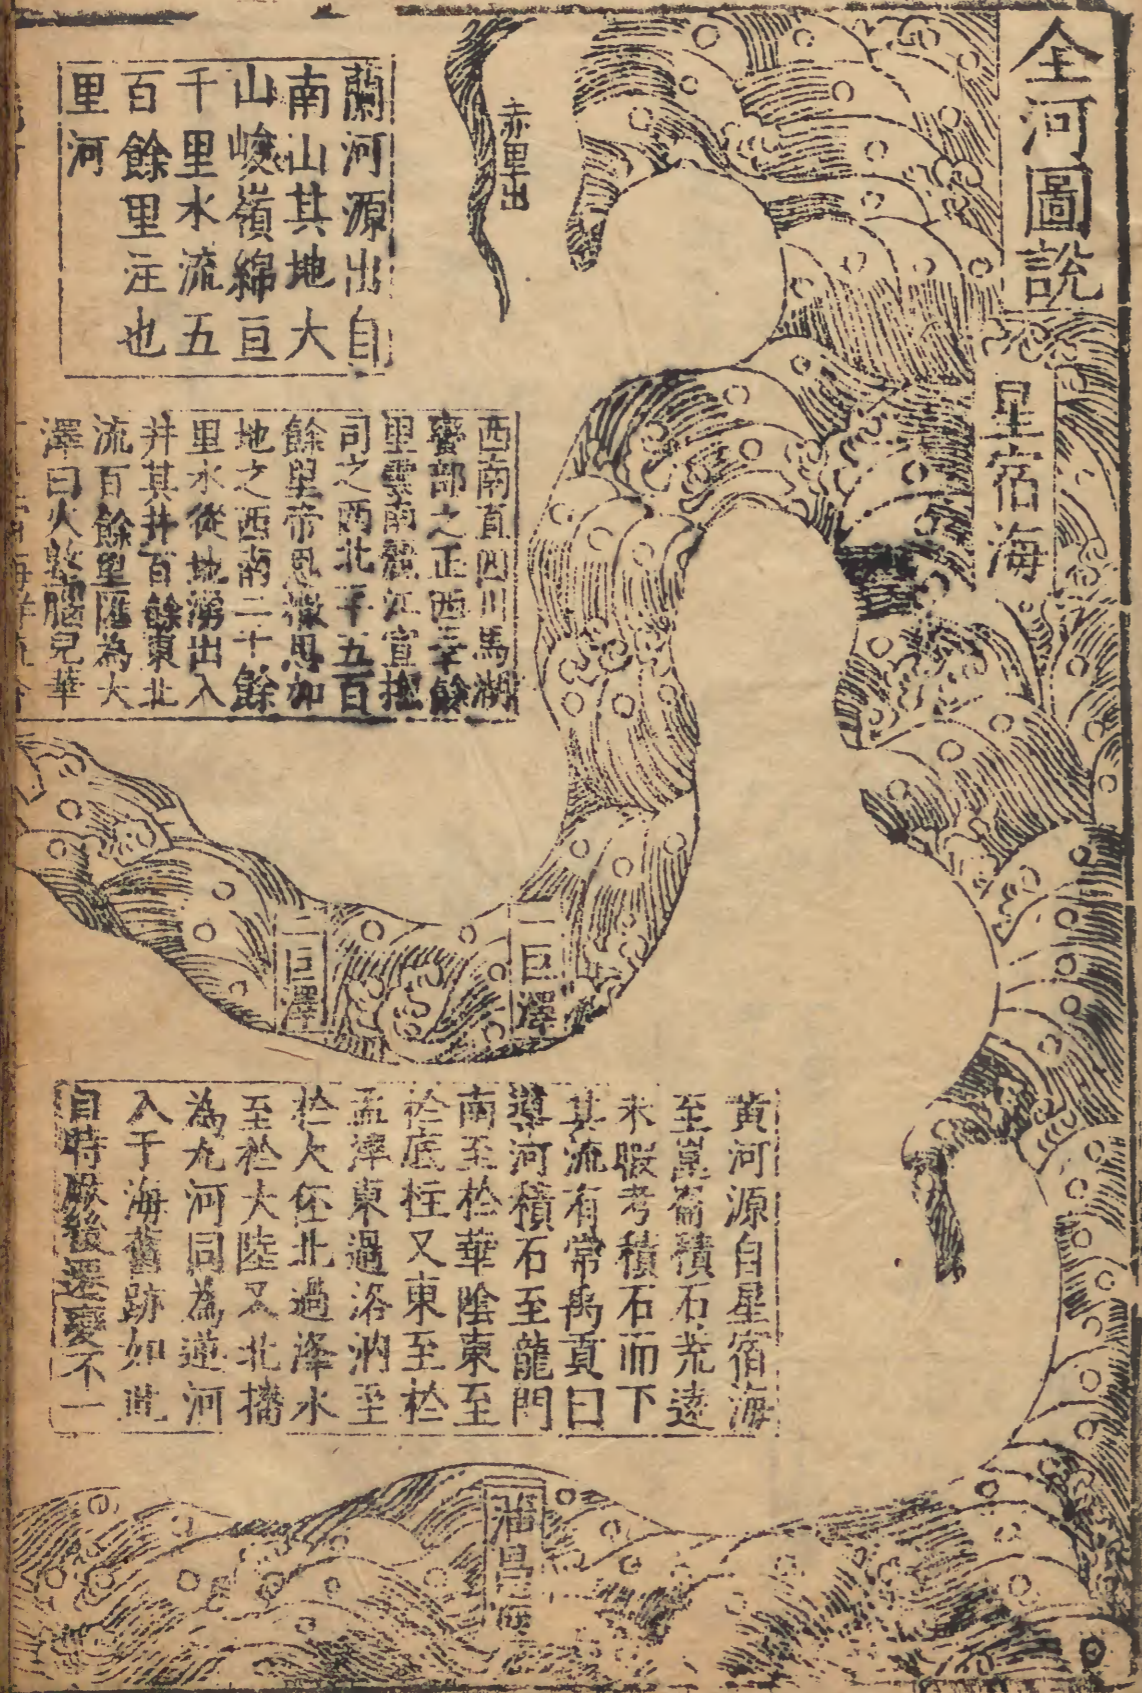 全河圖說
星宿海
赤里出
蘭河源出自
南山其地大
山峻嶺綿亘
千里水流五
百餘里注也
里河
西南直四川馬湖
蠻部之正西三千餘
里雲南麗江宣撫
司之西北一千五百
餘里帝思撒思加
地之西南二十餘
里水從地湧出入
井其井百餘東北
流百餘里匯為大
澤曰火敦腦兒華
一巨澤
二巨澤
黃河源自星宿海
至崑崙積石荒遠
未暇考積石而下
其流有常禹貢曰
導河積石至龍門
南至於華陰東至
於底柱又東至於
孟津東過洛汭至
於大伾北過洚水
至於大陸又北播
為九河同為逆河
入于海舊跡如此
自時厥後遷變不一
蒲昌海